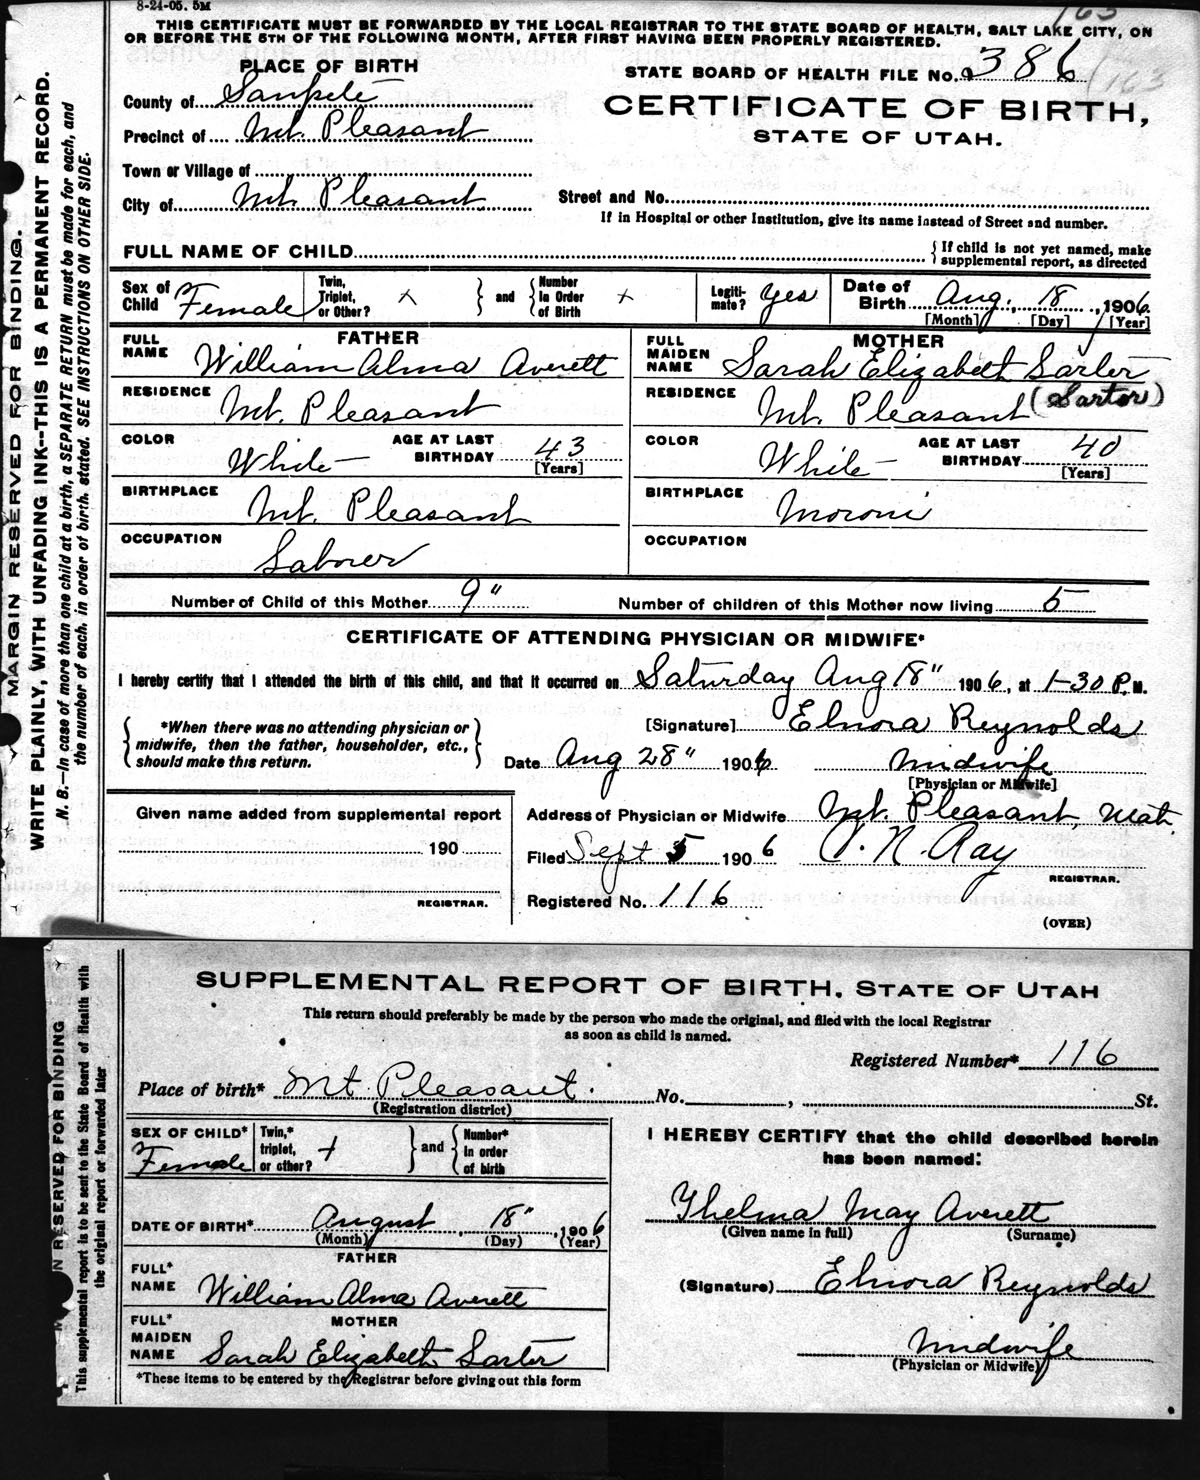 8-24-05. 5M
163
THIS CERTIFICATE MUST BE FORWARDED BY THE LOCAL REGISTRAR TO THE STATE BOARD OF HEALTH, SALT LAKE CITY, ON
OR BEFORE THE 5TH OF THE FOLLOWING MONTH, AFTER FIRST HAVING BEEN PROPERLY REGISTERED.
PLACE OF BIRTH
STATE BOARD OF HEALTH FILE No. 386
163
County of Sanpete
CERTIFICATE OF BIRTH,
Precinct of Mt. Pleasant
STATE OF UTAH.
Town or Village of
City of Mt. Pleasant
Street and No.
If in Hospital or other Institution, give its name instead of Street and number.
FULL NAME OF CHILD
{ If child is not yet named, make supplemental report, as directed
Sex of Child Female
Twin, Triplet, or Other? +
} and { Number in Order of Birth +
Legiti-mate? Yes
Date of Birth Aug. 18, 1906
[Month] [Day] [Year]
FATHER
FULL NAME William Alma Averett
MOTHER
FULL MAIDEN NAME Sarah Elizabeth Sarter
(Sartor)
RESIDENCE Mt. Pleasant
RESIDENCE Mt. Pleasant
COLOR White
AGE AT LAST BIRTHDAY 43
[Years]
COLOR White
AGE AT LAST BIRTHDAY 40
[Years]
BIRTHPLACE Mt. Pleasant
BIRTHPLACE Moroni
OCCUPATION Laborer
OCCUPATION
Number of Child of this Mother 9"
Number of children of this Mother now living 5
CERTIFICATE OF ATTENDING PHYSICIAN OR MIDWIFE*
I hereby certify that I attended the birth of this child, and that it occurred on Saturday Aug 18" 1906, at 1-30 P.M.
{ *When there was no attending physician or midwife, then the father, householder, etc., should make this return. }
[Signature] Elnora Reynolds
Date Aug 28" 1906
Midwife
[Physician or Midwife]
Given name added from supplemental report
190
REGISTRAR.
Address of Physician or Midwife Mt. Pleasant, Utah.
Filed Sept 5 1906
P. N. Ray
REGISTRAR.
Registered No. 116
(OVER)
MARGIN RESERVED FOR BINDING.
WRITE PLAINLY, WITH UNFADING INK--THIS IS A PERMANENT RECORD.
N. B.—In case of more than one child at a birth, a SEPARATE RETURN must be made for each, and
the number of each, in order of birth, stated. SEE INSTRUCTIONS ON OTHER SIDE.
SUPPLEMENTAL REPORT OF BIRTH, STATE OF UTAH
This return should preferably be made by the person who made the original, and filed with the local Registrar
as soon as child is named.
Registered Number* 116
Place of birth* Mt. Pleasant. No. , St.
(Registration district)
SEX OF CHILD* Female
Twin,* triplet, or other? +
} and { Number* in order of birth
I HEREBY CERTIFY that the child described herein
has been named:
Thelma May Averett
(Given name in full) (Surname)
DATE OF BIRTH* August 18", 1906
(Month) (Day) (Year)
FATHER
FULL* NAME William Alma Averett
(Signature) Elnora Reynolds
MOTHER
FULL* MAIDEN NAME Sarah Elizabeth Sarter
Midwife
(Physician or Midwife)
*These items to be entered by the Registrar before giving out this form
N RESERVED FOR BINDING
This supplemental report is to be sent to the State Board of Health with
the original report or forwarded later